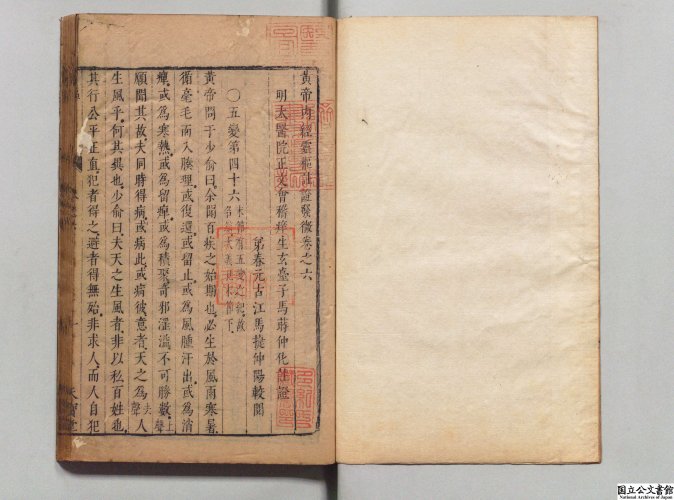 黃帝內經靈樞註證發微卷之六
明太醫院正文會稽庠生玄臺子馬蒔仲化註證
弟春元古江馬蓰仲陽較閱
○五變第四十六
末節有五變之紀故
名後大義見本節下
黃帝問于少俞曰余聞百疾之始期也必生於風雨寒暑
循毫毛而入腠理或復還或留止或為風腫汗出或為消
癉或為寒熱或為留痺或為積聚奇邪淫溢不可勝數上聲
願聞其故夫同時得病或病此或病彼意者天之為去聲人
生風乎何其異也少俞曰夫天之生風者非以私百姓也
其行公平正直犯者得之避者得無殆非求人而人自犯
天寶堂
国立公文書館
National Archives of Japan